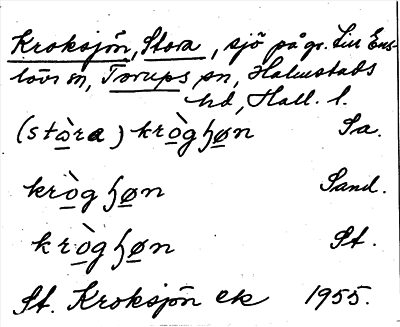 Kroksjön, Stora, sjö på gr. till Ens-
lövs sn, Torups sn, Halmstads
hd, Hall. l.
(stora) krògɧøn Sa.
krògɧøn Sand.
krògɧøn St.
St. Kroksjön ek 1955.